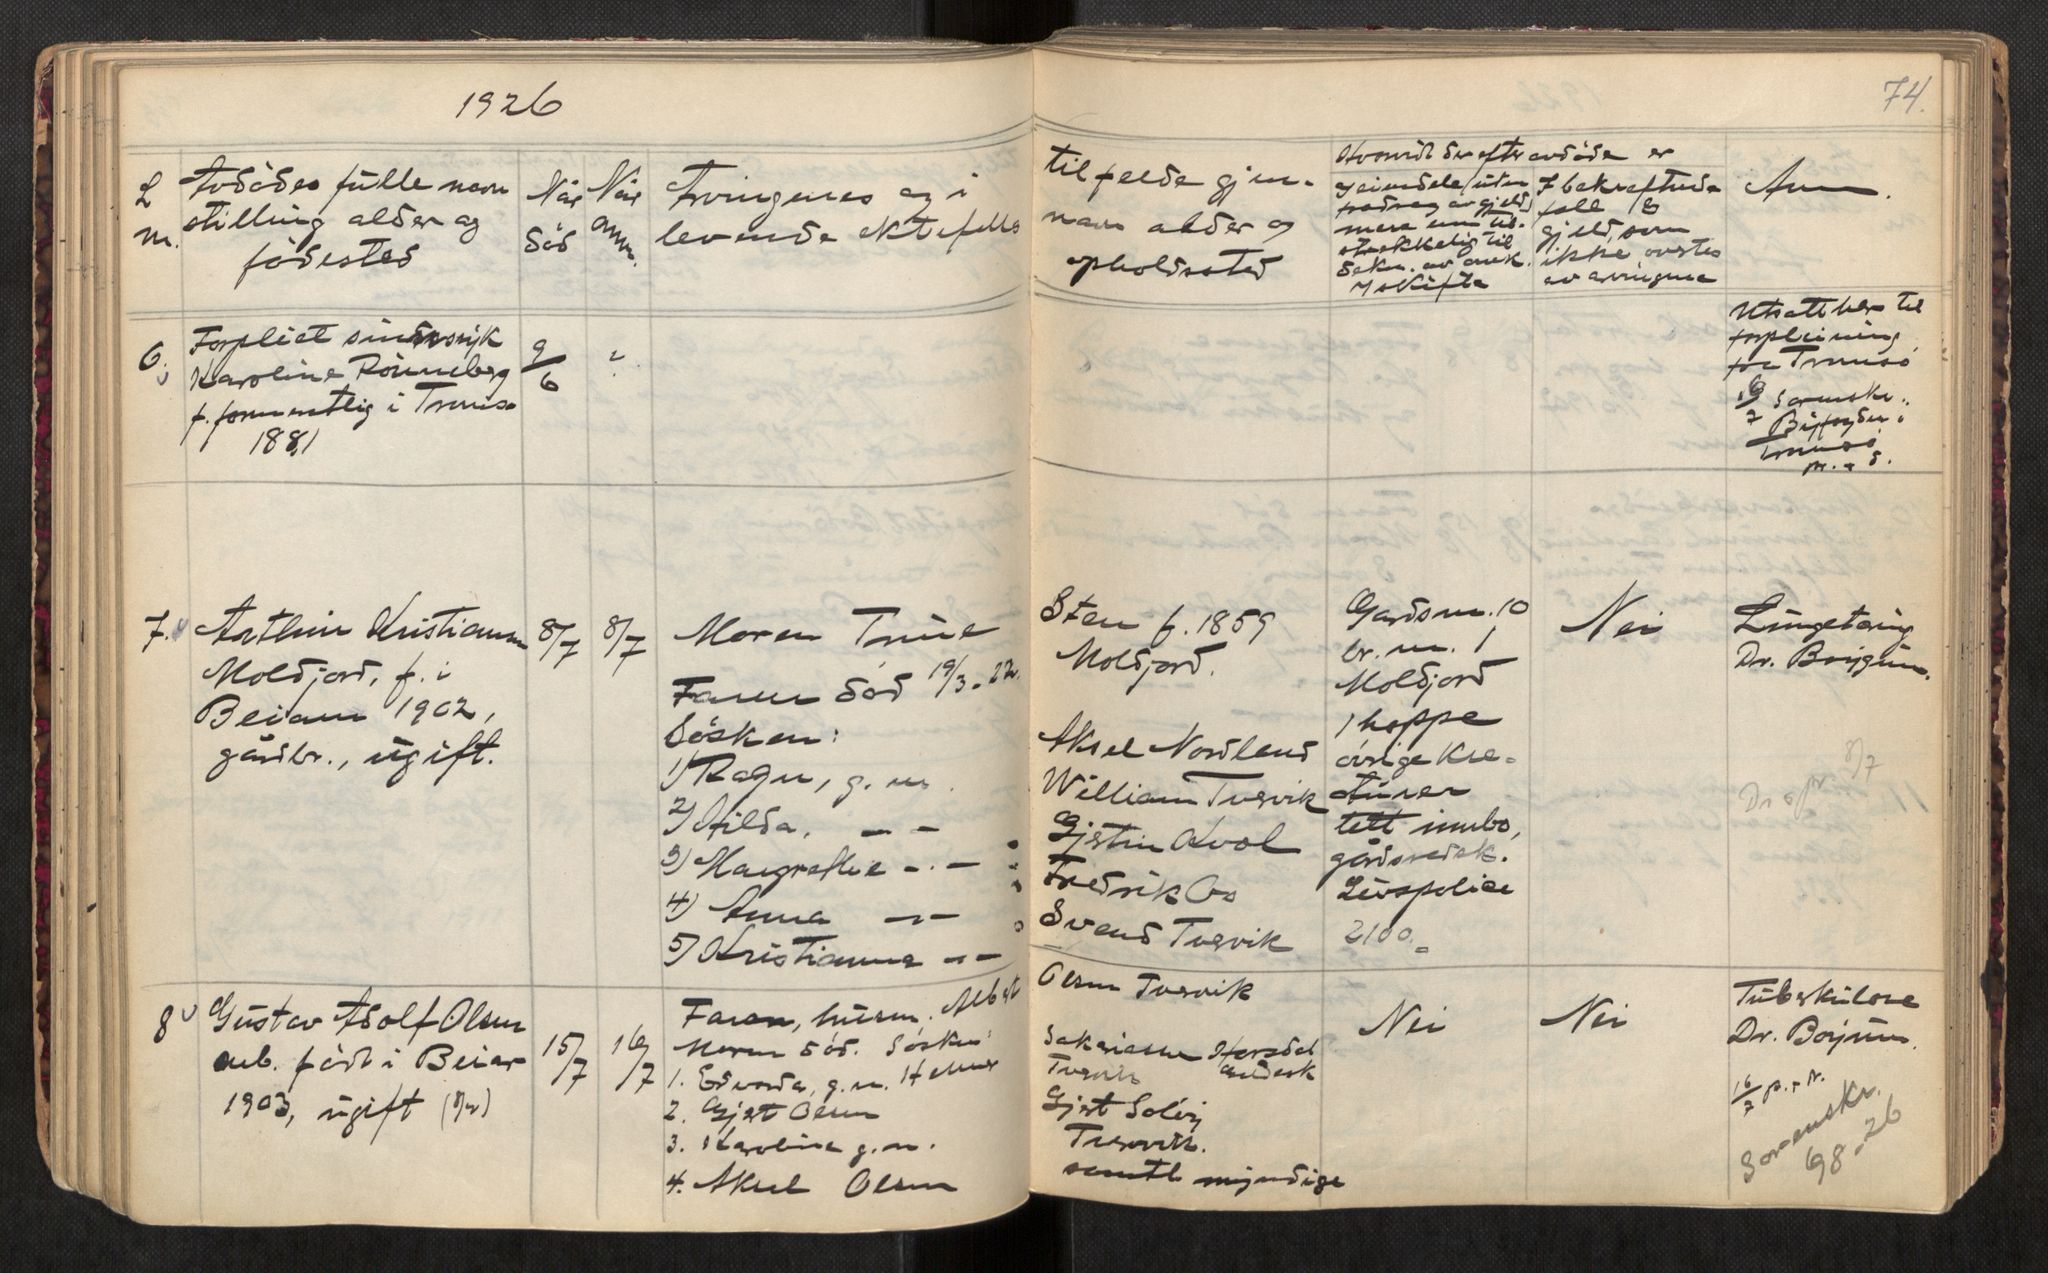 1926
74.
L
nr.
Avdödes fulle navn
stilling alder og
födested
Når
död
Når
anm.
Arvingenes og i
levende ektefelles
tilfelde gjen-
navn alder og
opholdssted
Hvorvidt der efter avdöde er
eiendele uten
fradrag av gjeld
mere enn til-
strekkelig til
dekn. av omk.
v skifte
I bekreftende
fall &
gjeld som
ikke overtas
av arvingene
Anm.
6.
Forpleiet sindssyk
Karoline Rönneberg
f. formentlig i Tromsö
1881
9/6
?
Utsatt her til
forpleining
fra Tromsö
Tromsö
7.
Arthur Kristiansen
Moldjord, f. i
Beiarn 1902,
gårdbr., ugift.
8/7
8/7
Moren Trine
Faren död 19/3-22.
Sösken:
1) Ragn, g. m.
2) Hilda, — —
3) Margrethe -.-
4) Anna — —
5) Kristianna — —
Sten f. 1859
Moldjord.
Aksel Nordland
William Tvervik
Gjertin Kvol
Fredrik Os
Svend Tvervik
Gardsnr. 10
br. nr. 1
Moldjord
1 hoppe
övrige Kre-
aturer
tett innbo,
gårdsredsk.
Livspolice
2100.-
Nei
Lungetæring
Dr. Borjgum.
8/7
8
Gustav Adolf Olsen
arb. födt i Beiar
1903, ugift
15/7
16/7
Faren, husm. Albert
Moren död. Sösken:
1. Edvarda, g. m. Helmer
2. Gjert Olsen
3. Karoline g. m.
4. Aksel Olsen
Olsen Tvervik
Sakariassen
Tvervik
Gjert Solöy
Tvervik.
samtl myndige
Nei
Nei
Tuberkulose
Dr. Borjgum.
16/7 p. r.
Sorenskr.
98-26